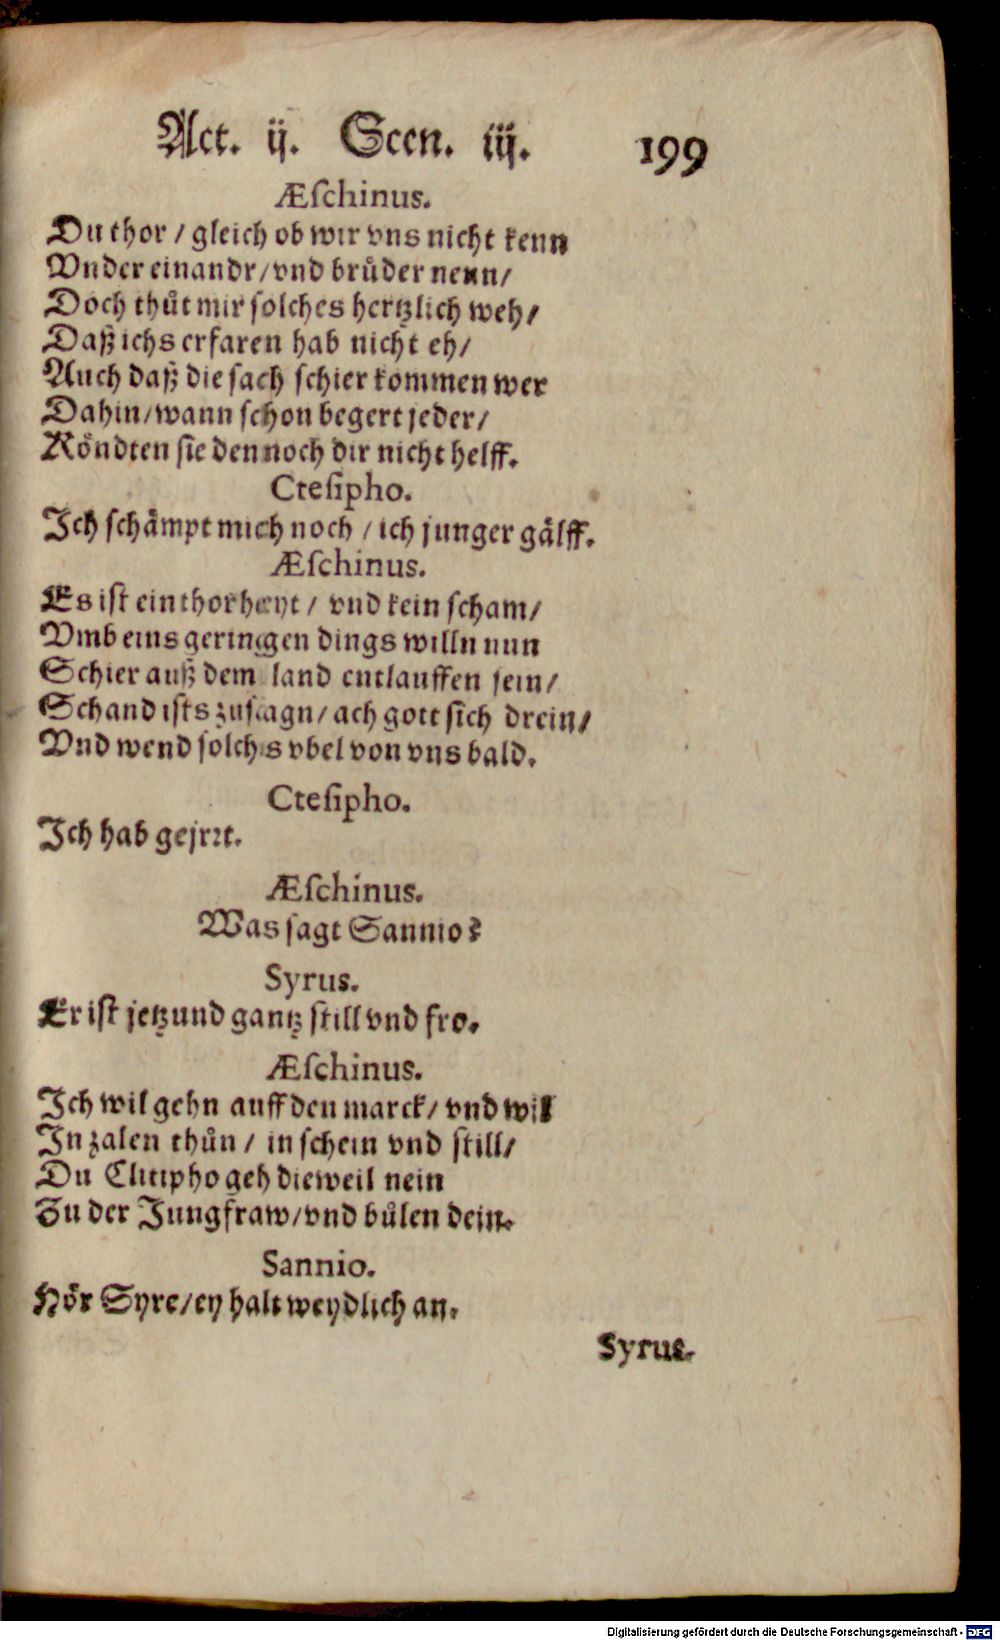 Act. ij. Scen. iij. 199
Æſchinus.
Du thor / gleich ob wir vns nicht kenn
Vnder einandr / vnd bruͤder nenn /
Doch thuͤt mir ſolches hertzlich weh /
Daß ichs erfaren hab nicht eh /
Auch daß die ſach ſchier kommen wer
Dahin / wann ſchon begert jeder /
Koͤndten ſie dennoch dir nicht helff.
Cteſipho.
Ich ſchaͤmpt mich noch / ich junger gaͤlff.
Æſchinus.
Es iſt ein thorheyt / vnd kein ſcham /
Vmb eins geringen dings willn nun
Schier auß dem land entlauffen ſein /
Schand iſts zuſagn / ach gott ſich drein /
Vnd wend ſolchs vbel von vns bald.
Cteſipho.
Ich hab gejrrt.
Æſchinus.
Was ſagt Sannio?
Syrus.
Er iſt jetzund gantz ſtill vnd fro.
Æſchinus.
Ich wil gehn auff den marck / vnd wil
In zalen thuͤn / in ſchein vnd ſtill /
Du Clitipho geh dieweil nein
Zu der Jungfraw / vnd buͤlen dein.
Sannio.
Hoͤr Syre / ey halt weydlich an.
Syrus.
Digitalisierung gefördert durch die Deutsche Forschungsgemeinschaft - DFG